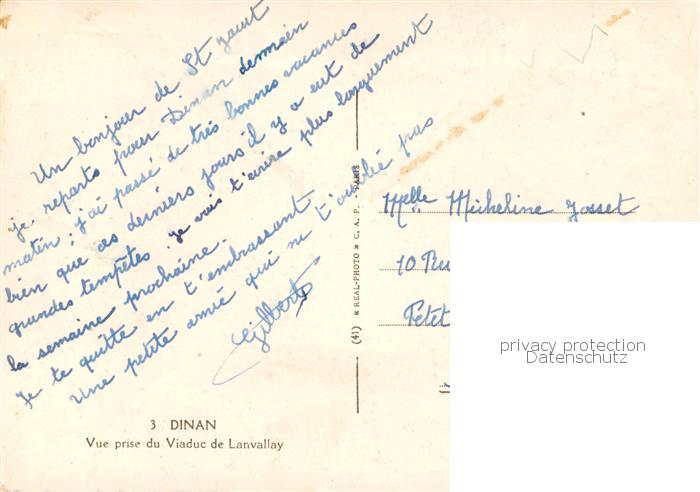 Un bonjour de St Jacut
je reparts pour Dinan demain
matin ; j'ai passé de très bonnes vacances
bien que ces derniers jours il y a eut de
grandes tempêtes. Je vais t'écrire plus longuement
la semaine prochaine.
Je te quitte en t'embrassant
Une petite amie qui ne t'oublie pas
Gilberte
3 DINAN
Vue prise du Viaduc de Lanvallay
(41) « REAL-PHOTO » C. A. P. - PARIS
Melle Micheline Josset
10 Ru
Petit
privacy protection
Datenschutz